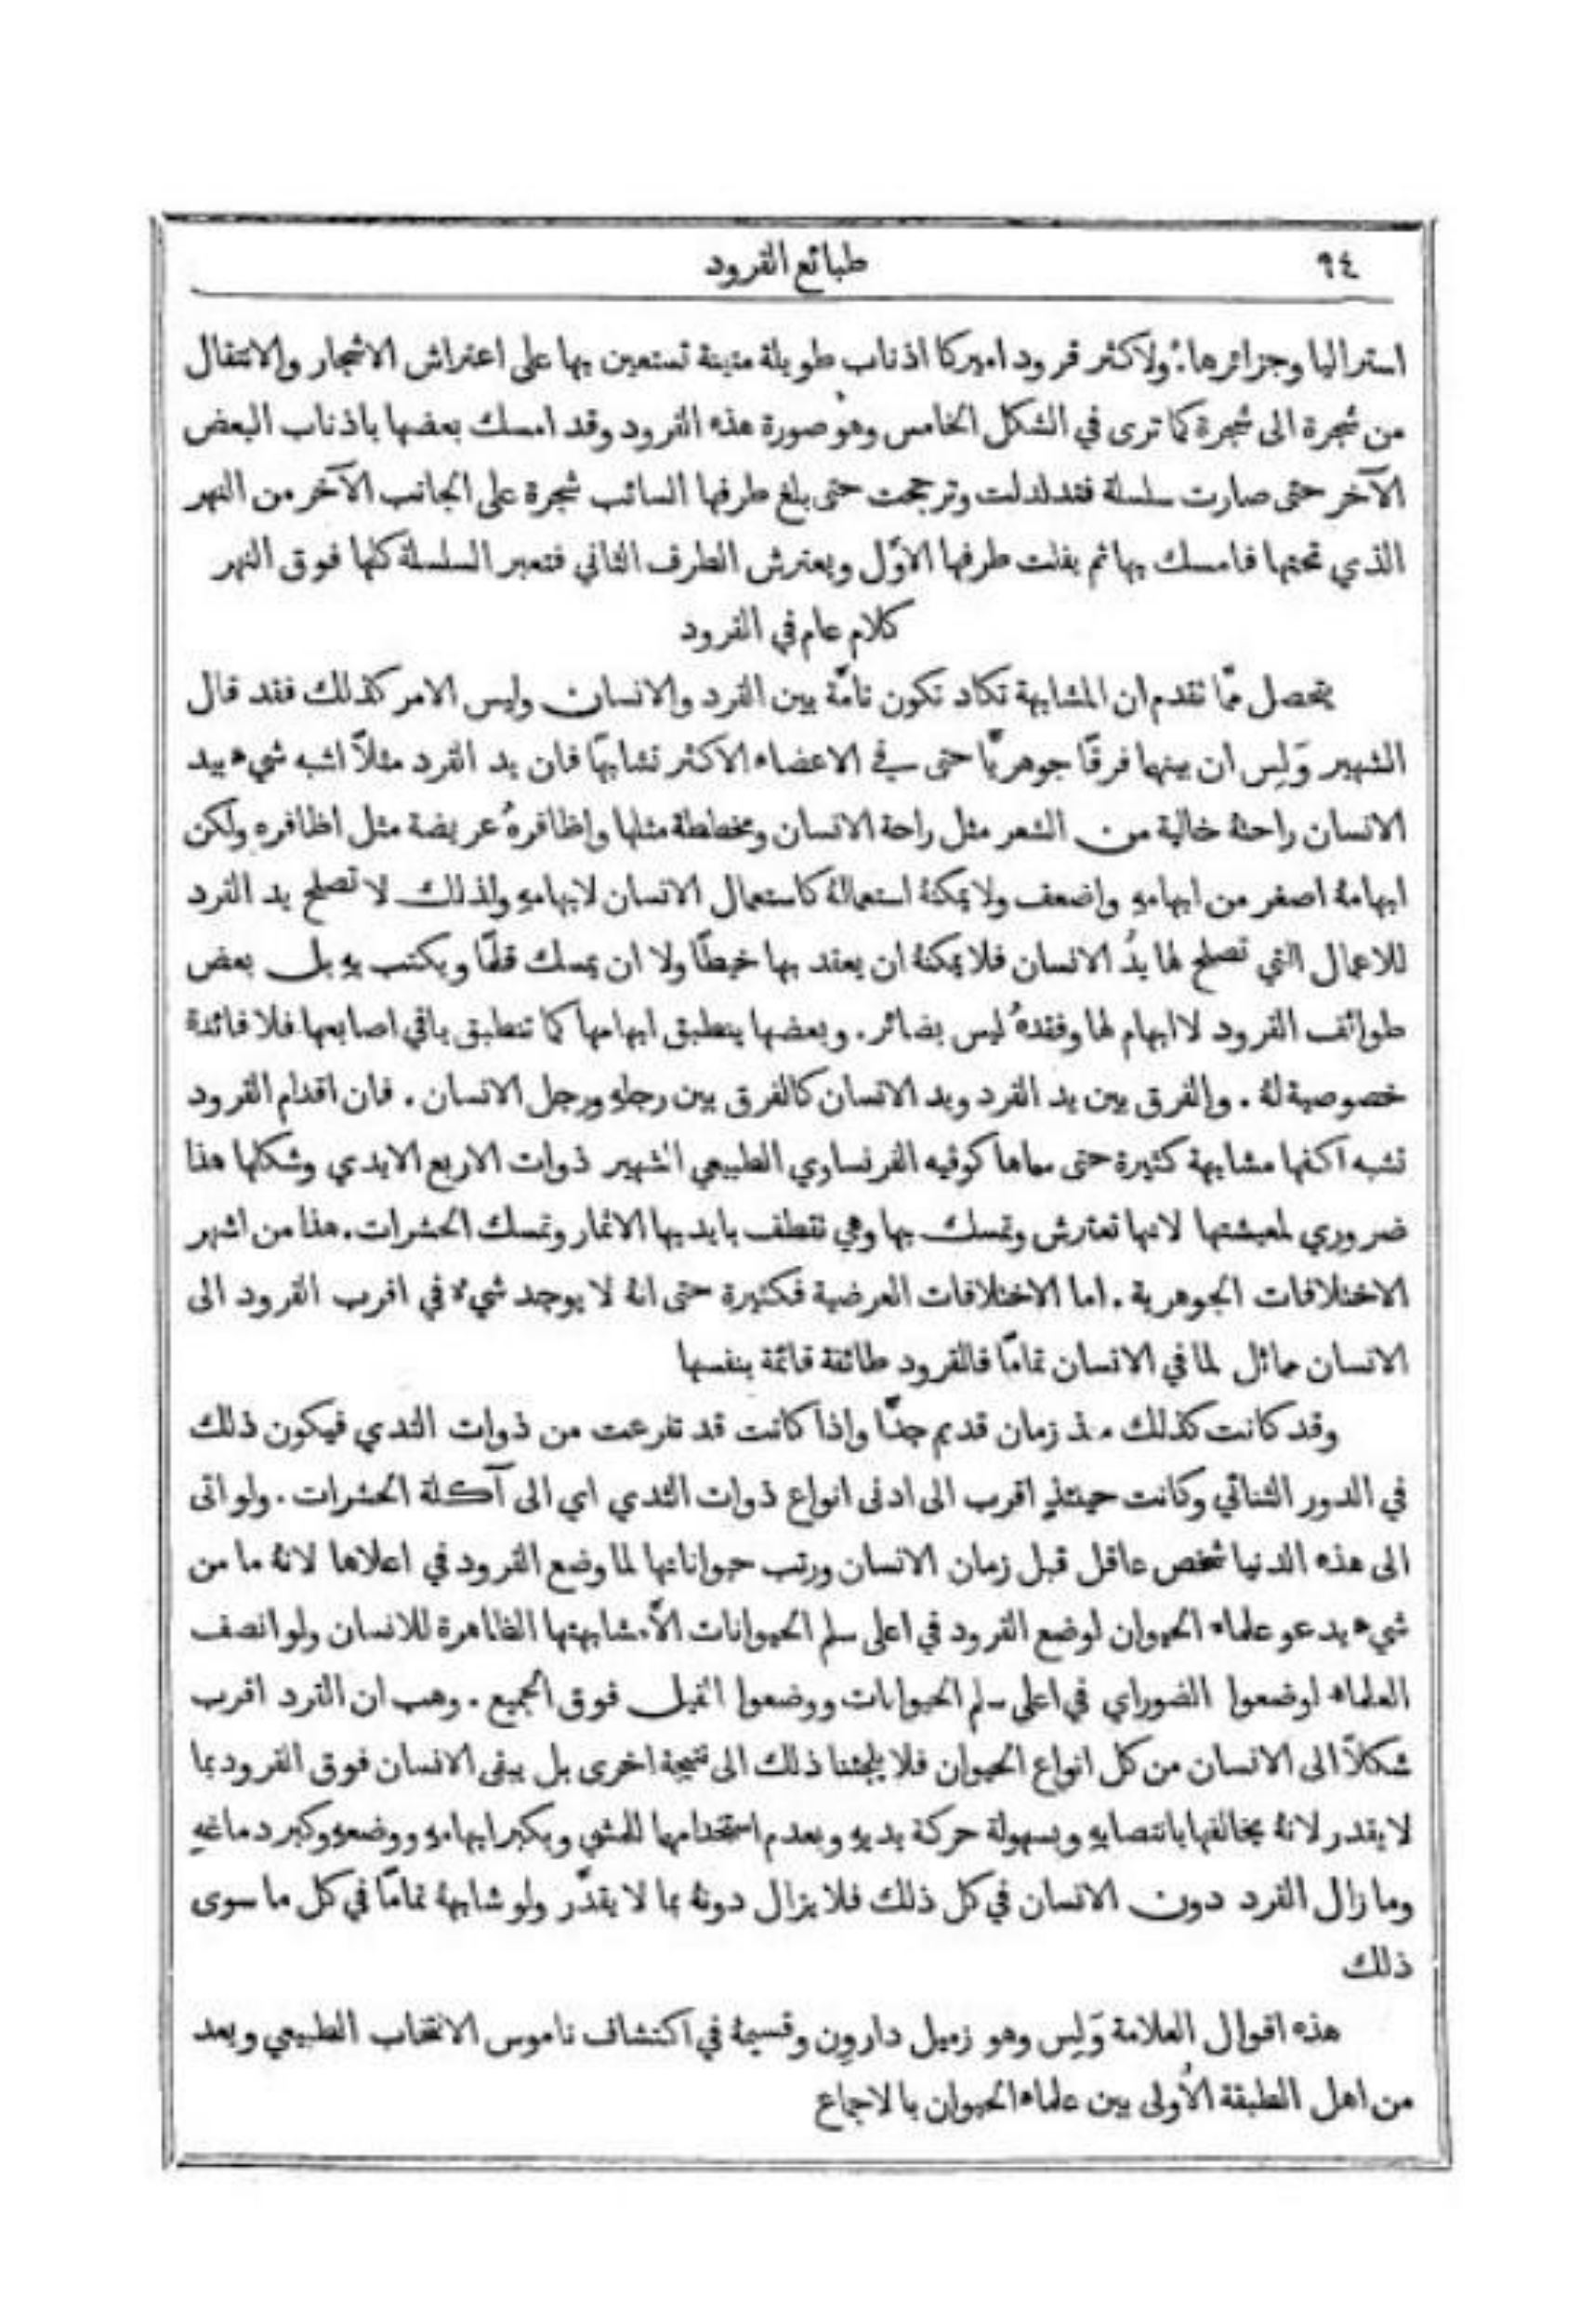 ٩٤
طبائع القرود
استراليا وجزائرها. ولاكثر قرود اميركا اذناب طويلة متينة تستعين بها على اعتراش الاشجار والانتقال
من شجرة الى شجرة كما ترى في الشكل الخامس وهو صورة هذه القرود وقد امسك بعضها باذناب البعض
الآخر حتى صارت سلسلة فتدلدلت وترجحت حتى بلغ طرفها السائب شجرة على الجانب الآخر من النهر
الذي تحتها فامسك بها ثم يفلت طرفها الاوّل ويعترش الطرف الثاني فتعبر السلسلة كلها فوق النهر
كلام عام في القرود
يتحصل ممَّا تقدم ان المشابهة تكاد تكون تامَّة بين القرد والانسان وليس الامر كذلك فقد قال
الشهير وَلِس ان بينهما فرقًا جوهريًّا حتى في الاعضاء الاكثر تشابهًا فان يد القرد مثلاً اشبه شيء بيد
الانسان راحتهُ خالية من الشعر مثل راحة الانسان ومخططة مثلها واظافرهُ عريضة مثل اظافرهِ ولكن
ابهامهُ اصغر من ابهامهِ واضعف ولا يمكنهُ استعمالهُ كاستعمال الانسان لابهامهِ ولذلك لا تصلح يد القرد
للاعمال التي تصلح لها يدُ الانسان فلا يمكنهُ ان يعقد بها خيطًا ولا ان يمسك قلمًا ويكتب بهِ بل بعض
طوائف القرود لا ابهام لها وفقدهُ ليس بضائر. وبعضها ينطبق ابهامها كما تنطبق باقي اصابعها فلا فائدة
خصوصية لهُ. والفرق بين يد القرد ويد الانسان كالفرق بين رجلهِ ورجل الانسان. فان اقدام القرود
تشبه اكفها مشابهة كثيرة حتى سماها كوفيه الفرنساوي الطبيعي الشهير ذوات الاربع الايدي وشكلها هذا
ضروري لمعيشتها لانها تعترش وتمسك بها وهي تقطف بايديها الاثمار وتمسك الحشرات. هذا من اشهر
الاختلافات الجوهرية. اما الاختلافات العرضية فكثيرة حتى انهُ لا يوجد شيءٌ في اقرب القرود الى
الانسان مماثل لما في الانسان تمامًا فالقرود طائفة قائمة بنفسها
وقد كانت كذلك منذ زمان قديم جدًّا واذا كانت قد تفرعت من ذوات الثدي فيكون ذلك
في الدور الثنائي وكانت حينئذٍ اقرب الى ادنى انواع ذوات الثدي اي الى آكلة الحشرات. ولو اتى
الى هذه الدنيا شخص عاقل قبل زمان الانسان ورتب حيواناتها لما وضع القرود في اعلاها لانهُ ما من
شيء يدعو علماء الحيوان لوضع القرود في اعلى سلم الحيوانات الاَّ مشابهتها الظاهرة للانسان ولو انصف
العلماء لوضعوا الضوراي في اعلى سلم الحيوانات ووضعوا الفيل فوق الجميع. وهب ان القرد اقرب
شكلاً الى الانسان من كل انواع الحيوان فلا يلجئنا ذلك الى نتيجة اخرى بل يبقى الانسان فوق القرود بما
لا يقدر لانهُ يخالفها بانتصابهِ وبسهولة حركة يديهِ وبعدم استخدامها للمشي وبكبر ابهامهِ ووضعهِ وكبر دماغهِ
وما زال القرد دون الانسان في كل ذلك فلا يزال دونهُ بما لا يقدَّر ولو شابههُ تمامًا في كل ما سوى
ذلك
هذه اقوال العلامة وَلِس وهو زميل داروِن وقسيمهُ في اكتشاف ناموس الانتخاب الطبيعي ويعد
من اهل الطبقة الاُولى بين علماء الحيوان بالاجماع